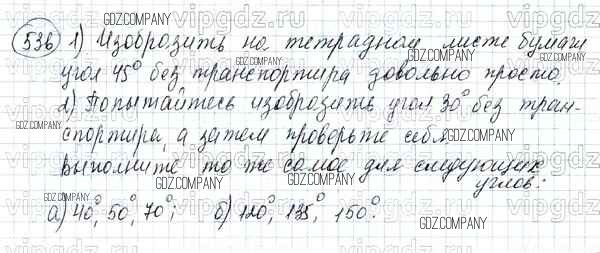 GDZ.COMPANY
536 1) Изобразить на тетрадном листе бумаги
GDZ.COMPANY GDZ.COMPANY
угол 45° без транспортира довольно просто.
2) Попытайтесь изобразить угол 30° без тран-
GDZ.COMPANY GDZ.COMPANY
спортира, а затем проверьте себя.
GDZ.COMPANY GDZ.COMPANY
Выполните то же самое для следующих
GDZ.COMPANY GDZ.COMPANY
углов:
GDZ.COMPANY
а) 40°, 50°, 70°; б) 120°, 135°, 150°.
GDZ.COMPANY